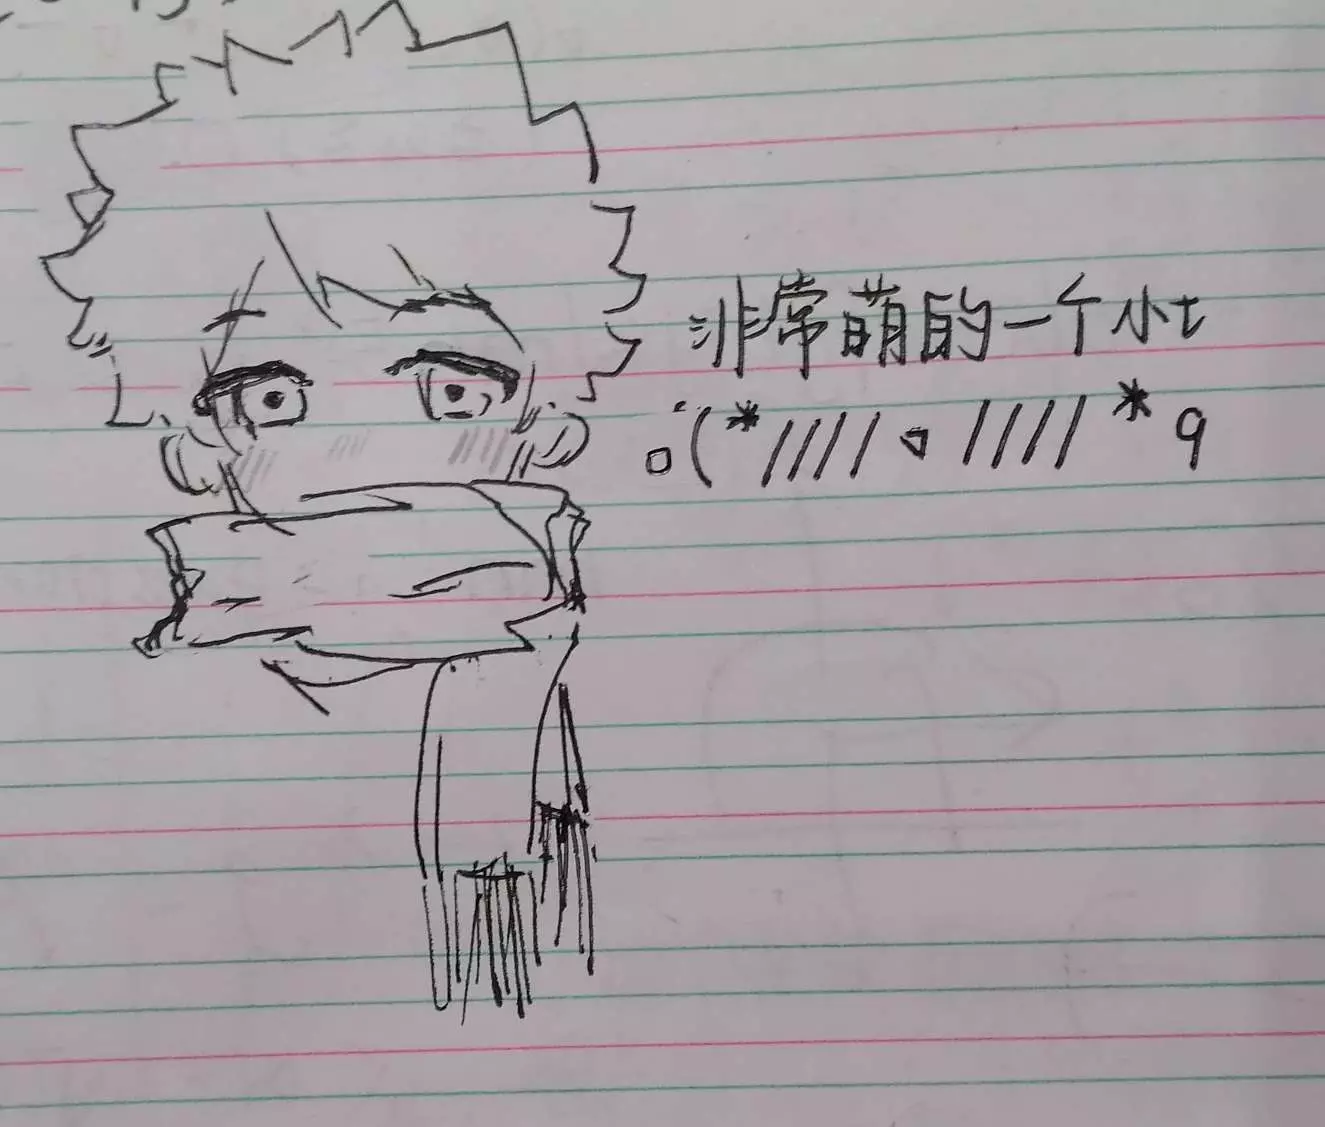 非常萌的一个小t
o(*////▽////*q